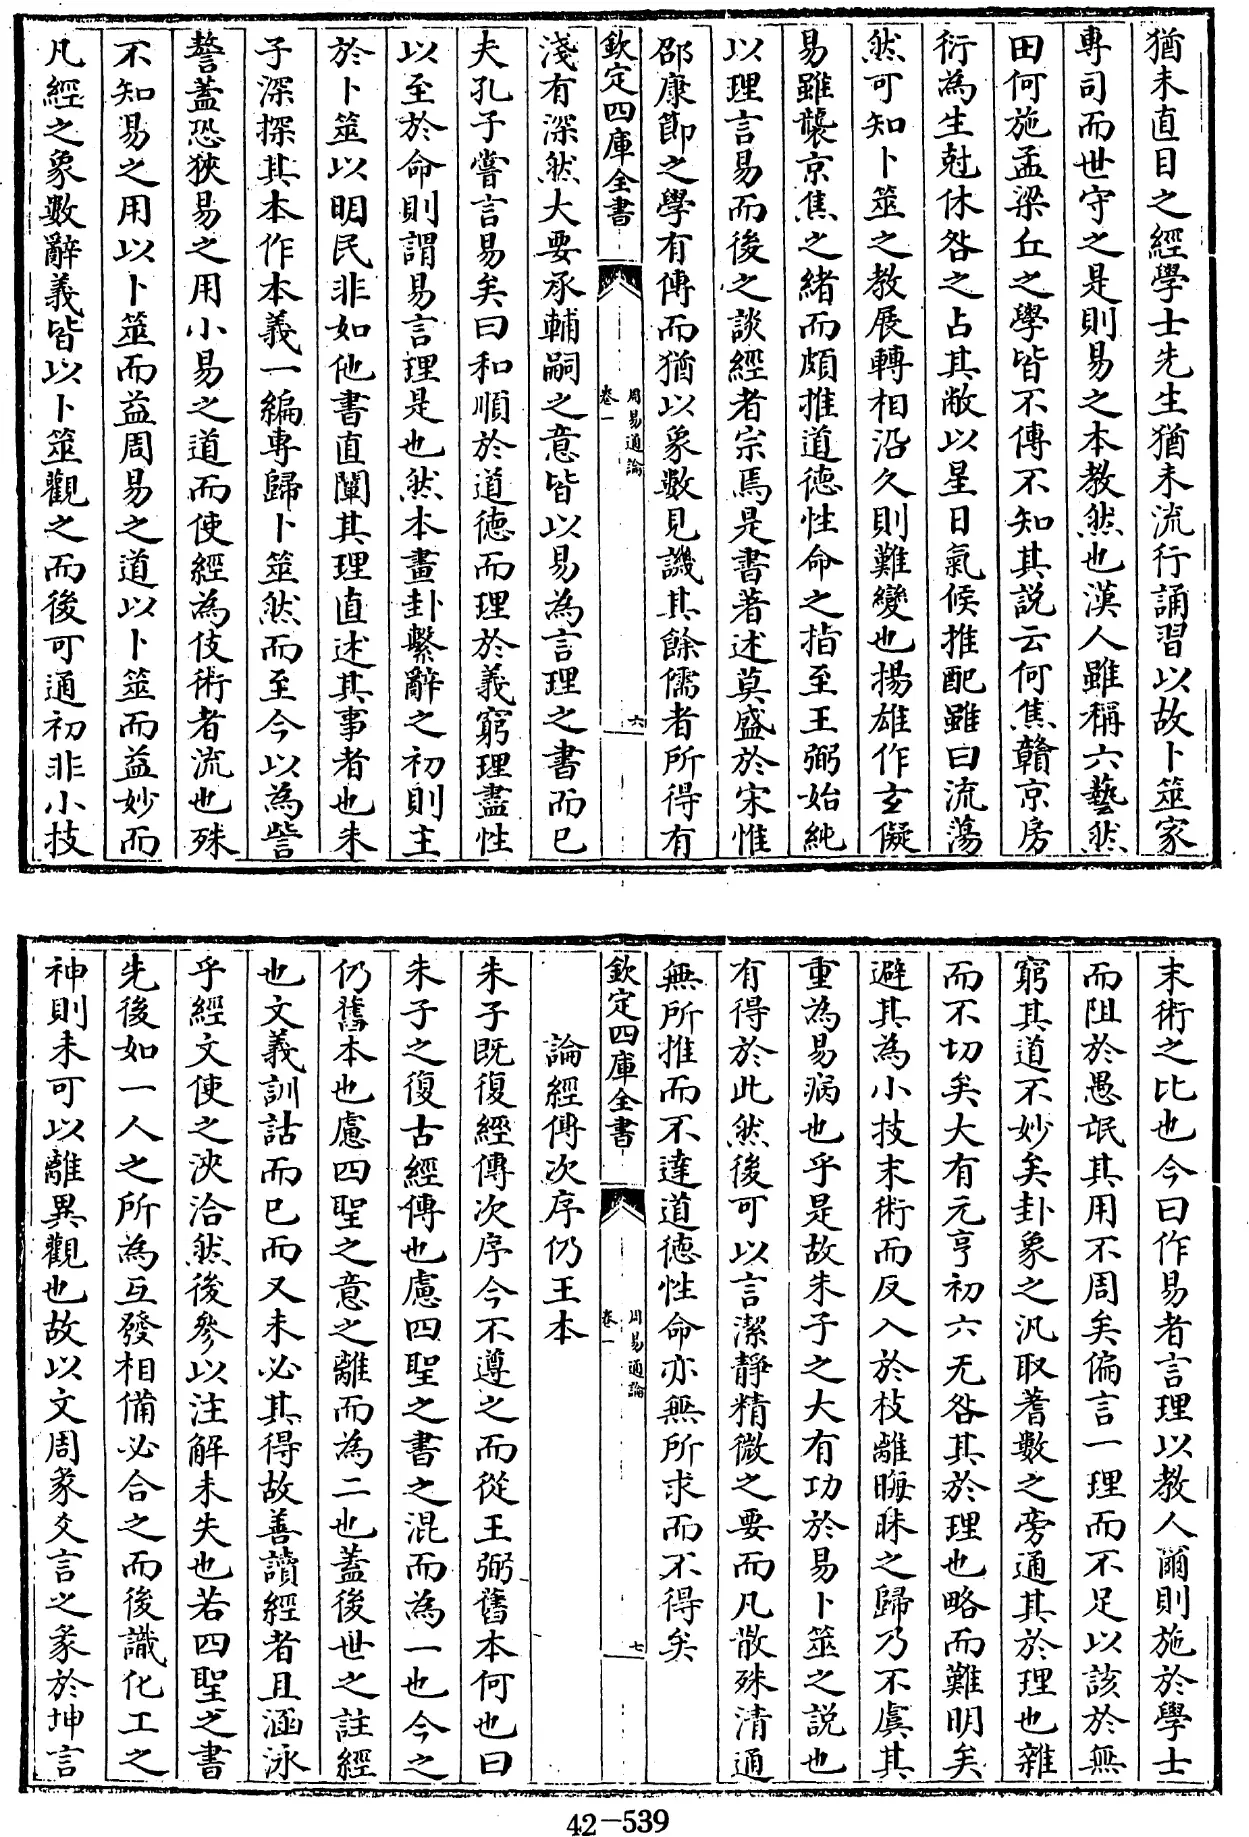 猶未直目之經學士先生猶未流行誦習以故卜筮家
專司而世守之是則易之本教然也漢人雖稱六藝然
田何施孟梁丘之學皆不傳不知其説云何焦贛京房
衍為生尅休咎之占其敝以星日氣候推配雖曰流蕩
然可知卜筮之教展轉相沿久則難變也揚雄作玄儗
易雖襲京焦之緒而頗推道德性命之指至王弼始純
以理言易而後之談經者宗焉是書著述莫盛於宋惟
邵康節之學有傳而猶以象數見譏其餘儒者所得有
欽定四庫全書
周易通論
卷一
六
淺有深然大要承輔嗣之意皆以易為言理之書而已
夫孔子嘗言易矣曰和順於道德而理於義窮理盡性
以至於命則謂易言理是也然本畫卦繫辭之初則主
於卜筮以明民非如他書直闡其理直述其事者也朱
子深探其本作本義一編專歸卜筮然而至今以為訾
謷蓋恐狹易之用小易之道而使經為伎術者流也殊
不知易之用以卜筮而益周易之道以卜筮而益妙而
凡經之象數辭義皆以卜筮觀之而後可通初非小技
末術之比也今曰作易者言理以教人爾則施於學士
而阻於愚氓其用不周矣偏言一理而不足以該於無
窮其道不妙矣卦象之汎取蓍數之旁通其於理也雜
而不切矣大有元亨初六无咎其於理也略而難明矣
避其為小技末術而反入於枝離晦昧之歸乃不虞其
重為易病也乎是故朱子之大有功於易卜筮之説也
有得於此然後可以言潔靜精微之要而凡散殊清通
無所推而不達道德性命亦無所求而不得矣
欽定四庫全書
周易通論
卷一
七
論經傳次序仍王本
朱子既復經傳次序今不遵之而從王弼舊本何也曰
朱子之復古經傳也慮四聖之書之混而為一也今之
仍舊本也慮四聖之意之離而為二也蓋後世之註經
也文義訓詁而已而又未必其得故善讀經者且涵泳
乎經文使之浹洽然後參以注解未失也若四聖之書
先後如一人之所為互發相備必合之而後識化工之
神則未可以離異觀也故以文周彖爻言之彖於坤言
42-539